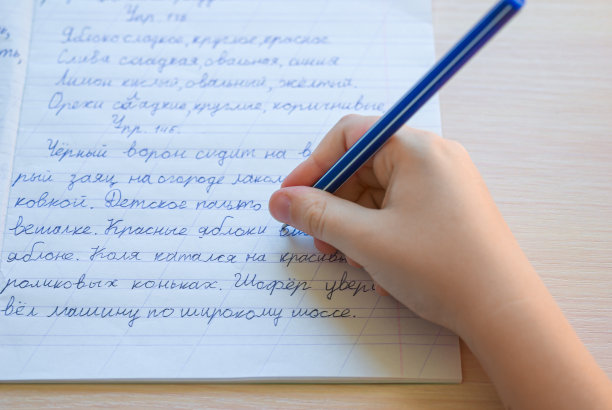 Упр.
Яблоко сладкое, круглое, красное
Слива сладкая, овальная, синяя
Лимон кислый, овальный, жёлтый.
Орехи сладкие, круглые, коричневые
Упр. 146.
Чёрный ворон сидит на в
рый заяц на огороде лаком
ковкой. Детское пальто
вешалке. Красные яблоки
яблоне. Коля катался на красивы
роликовых коньках. Шофёр увер
вёл машину по широкому шоссе.